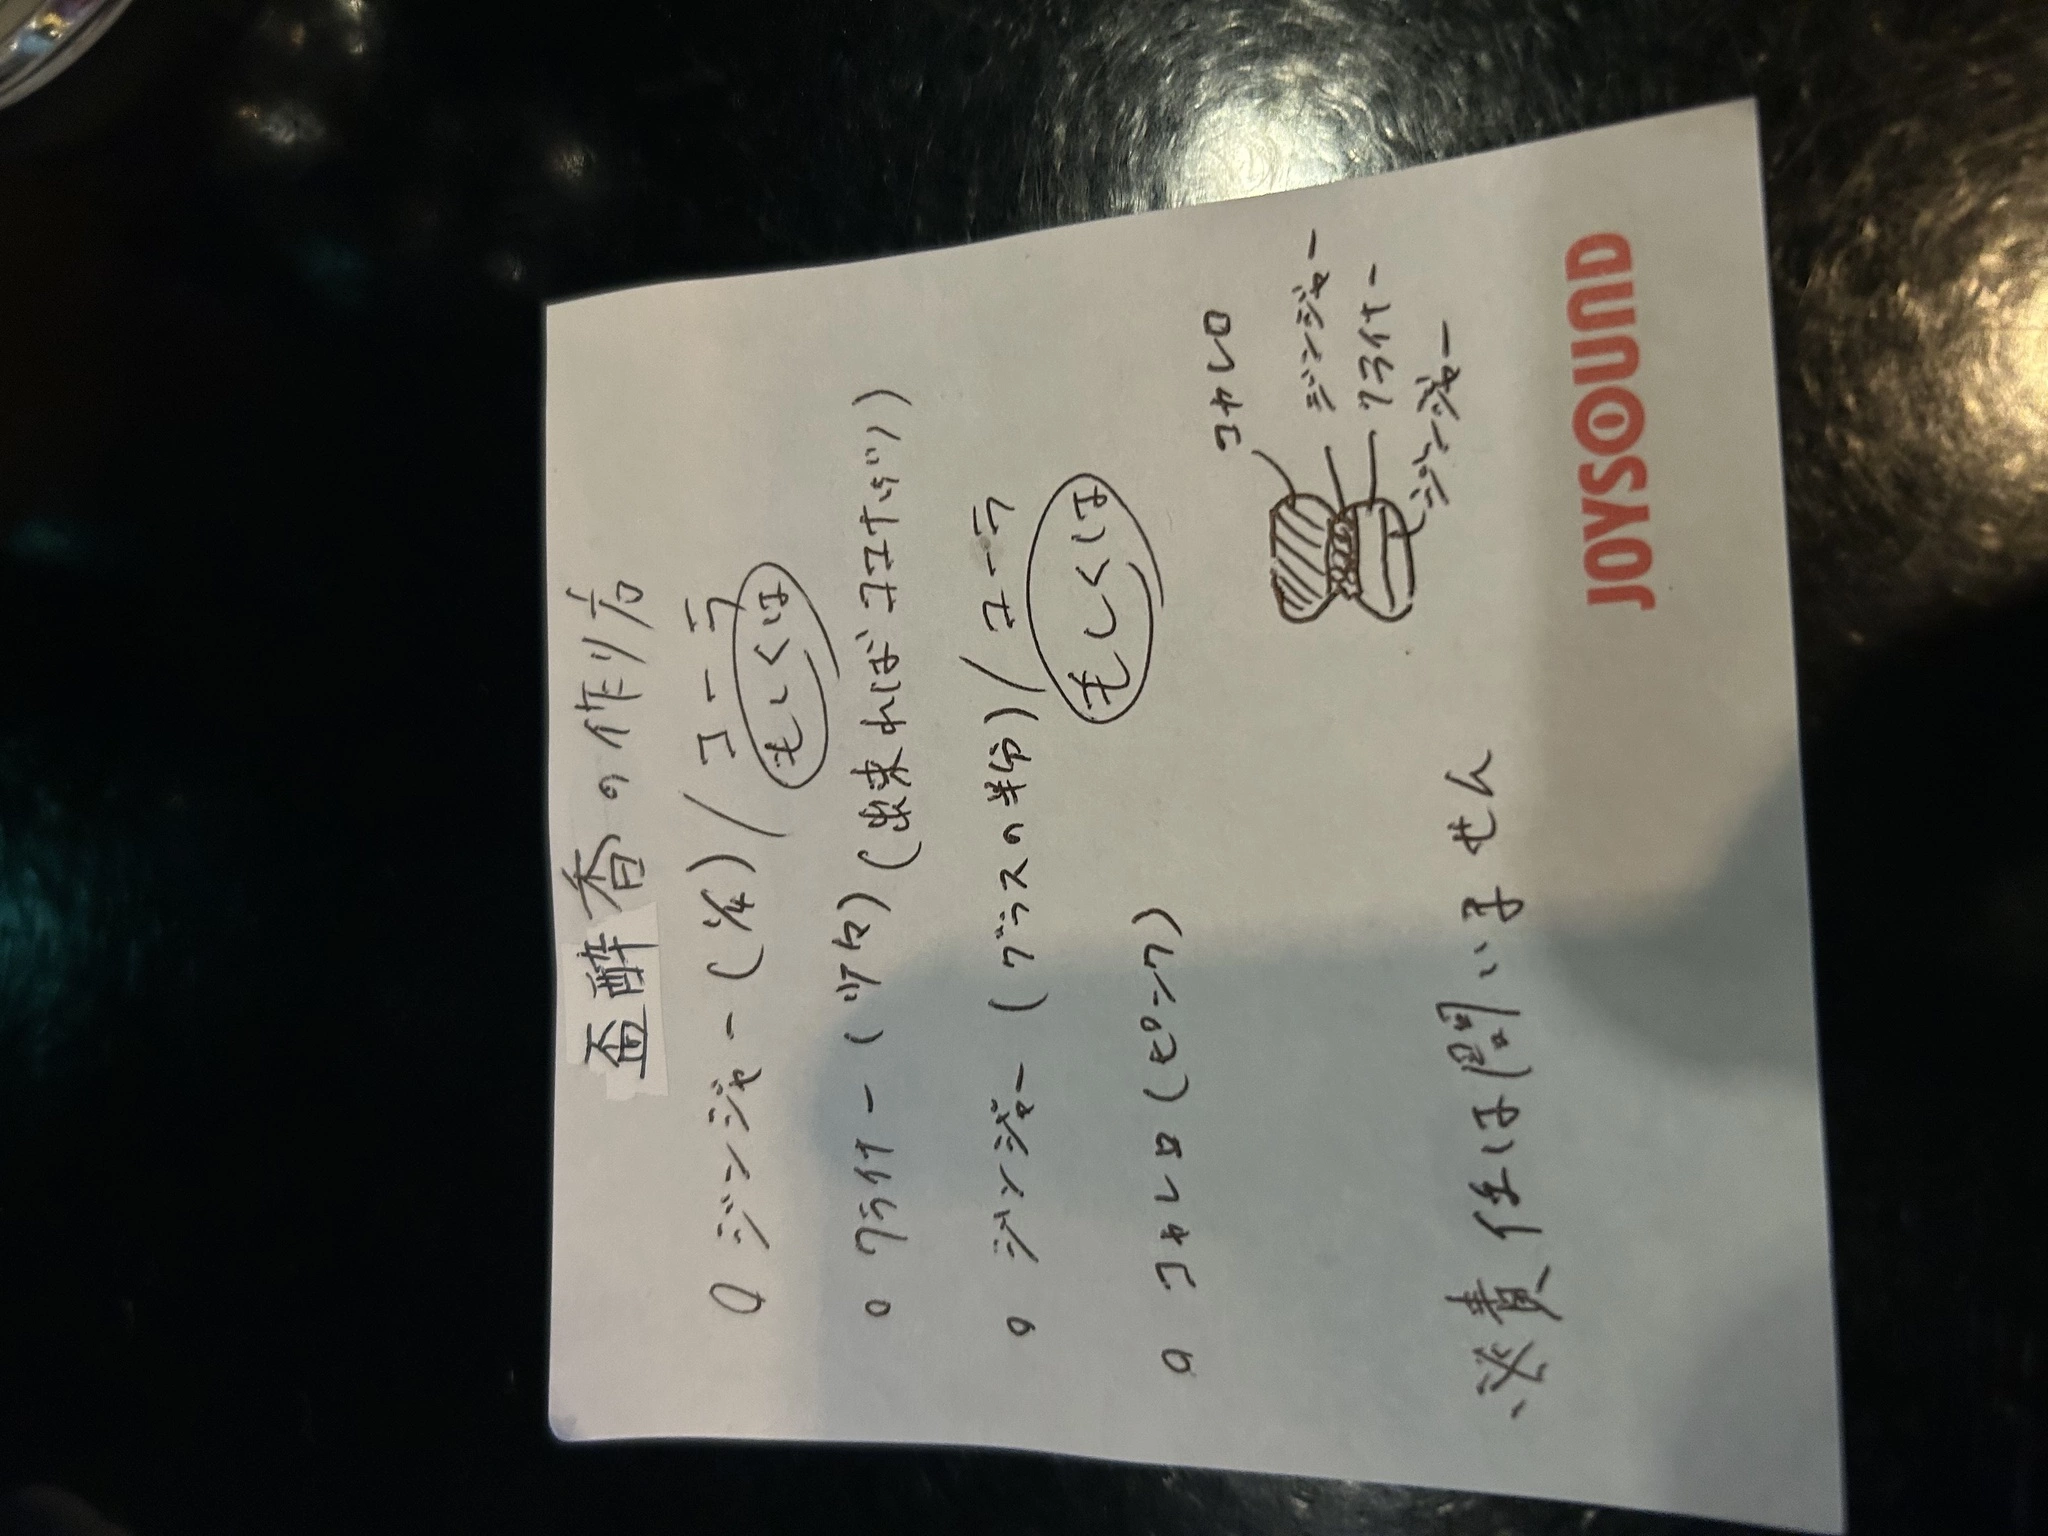 盃酔香の作り方
○ ジンジャー(1/4)/コーラ
もしくは
○ クライナー(少々)(出来ればココナッツ)
○ ジンジャー(グラスの半分)/コーラ
もしくは
○ コカレロ(ピンク)
コカレロ
ジンジャー
クライナー
ジンジャー
※責任は問いません
JOYSOUND